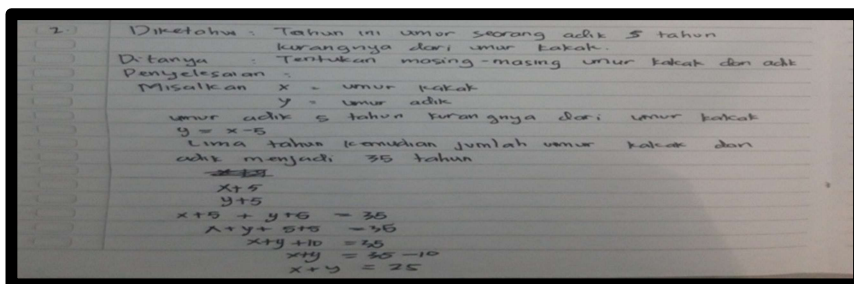 2.) Diketahui : Tahun ini umur seorang adik 5 tahun
kurangnya dari umur kakak.
Ditanya : Tentukan masing-masing umur kakak dan adik
Penyelesaian :
Misalkan x = umur kakak
y = umur adik
umur adik 5 tahun kurangnya dari umur kakak
y = x - 5
Lima tahun kemudian jumlah umur kakak dan
adik menjadi 35 tahun
x+5
y+5
x+5 + y+5 = 35
x+y+ 5+5 = 35
x+y +10 = 35
x+y = 35 - 10
x+y = 25